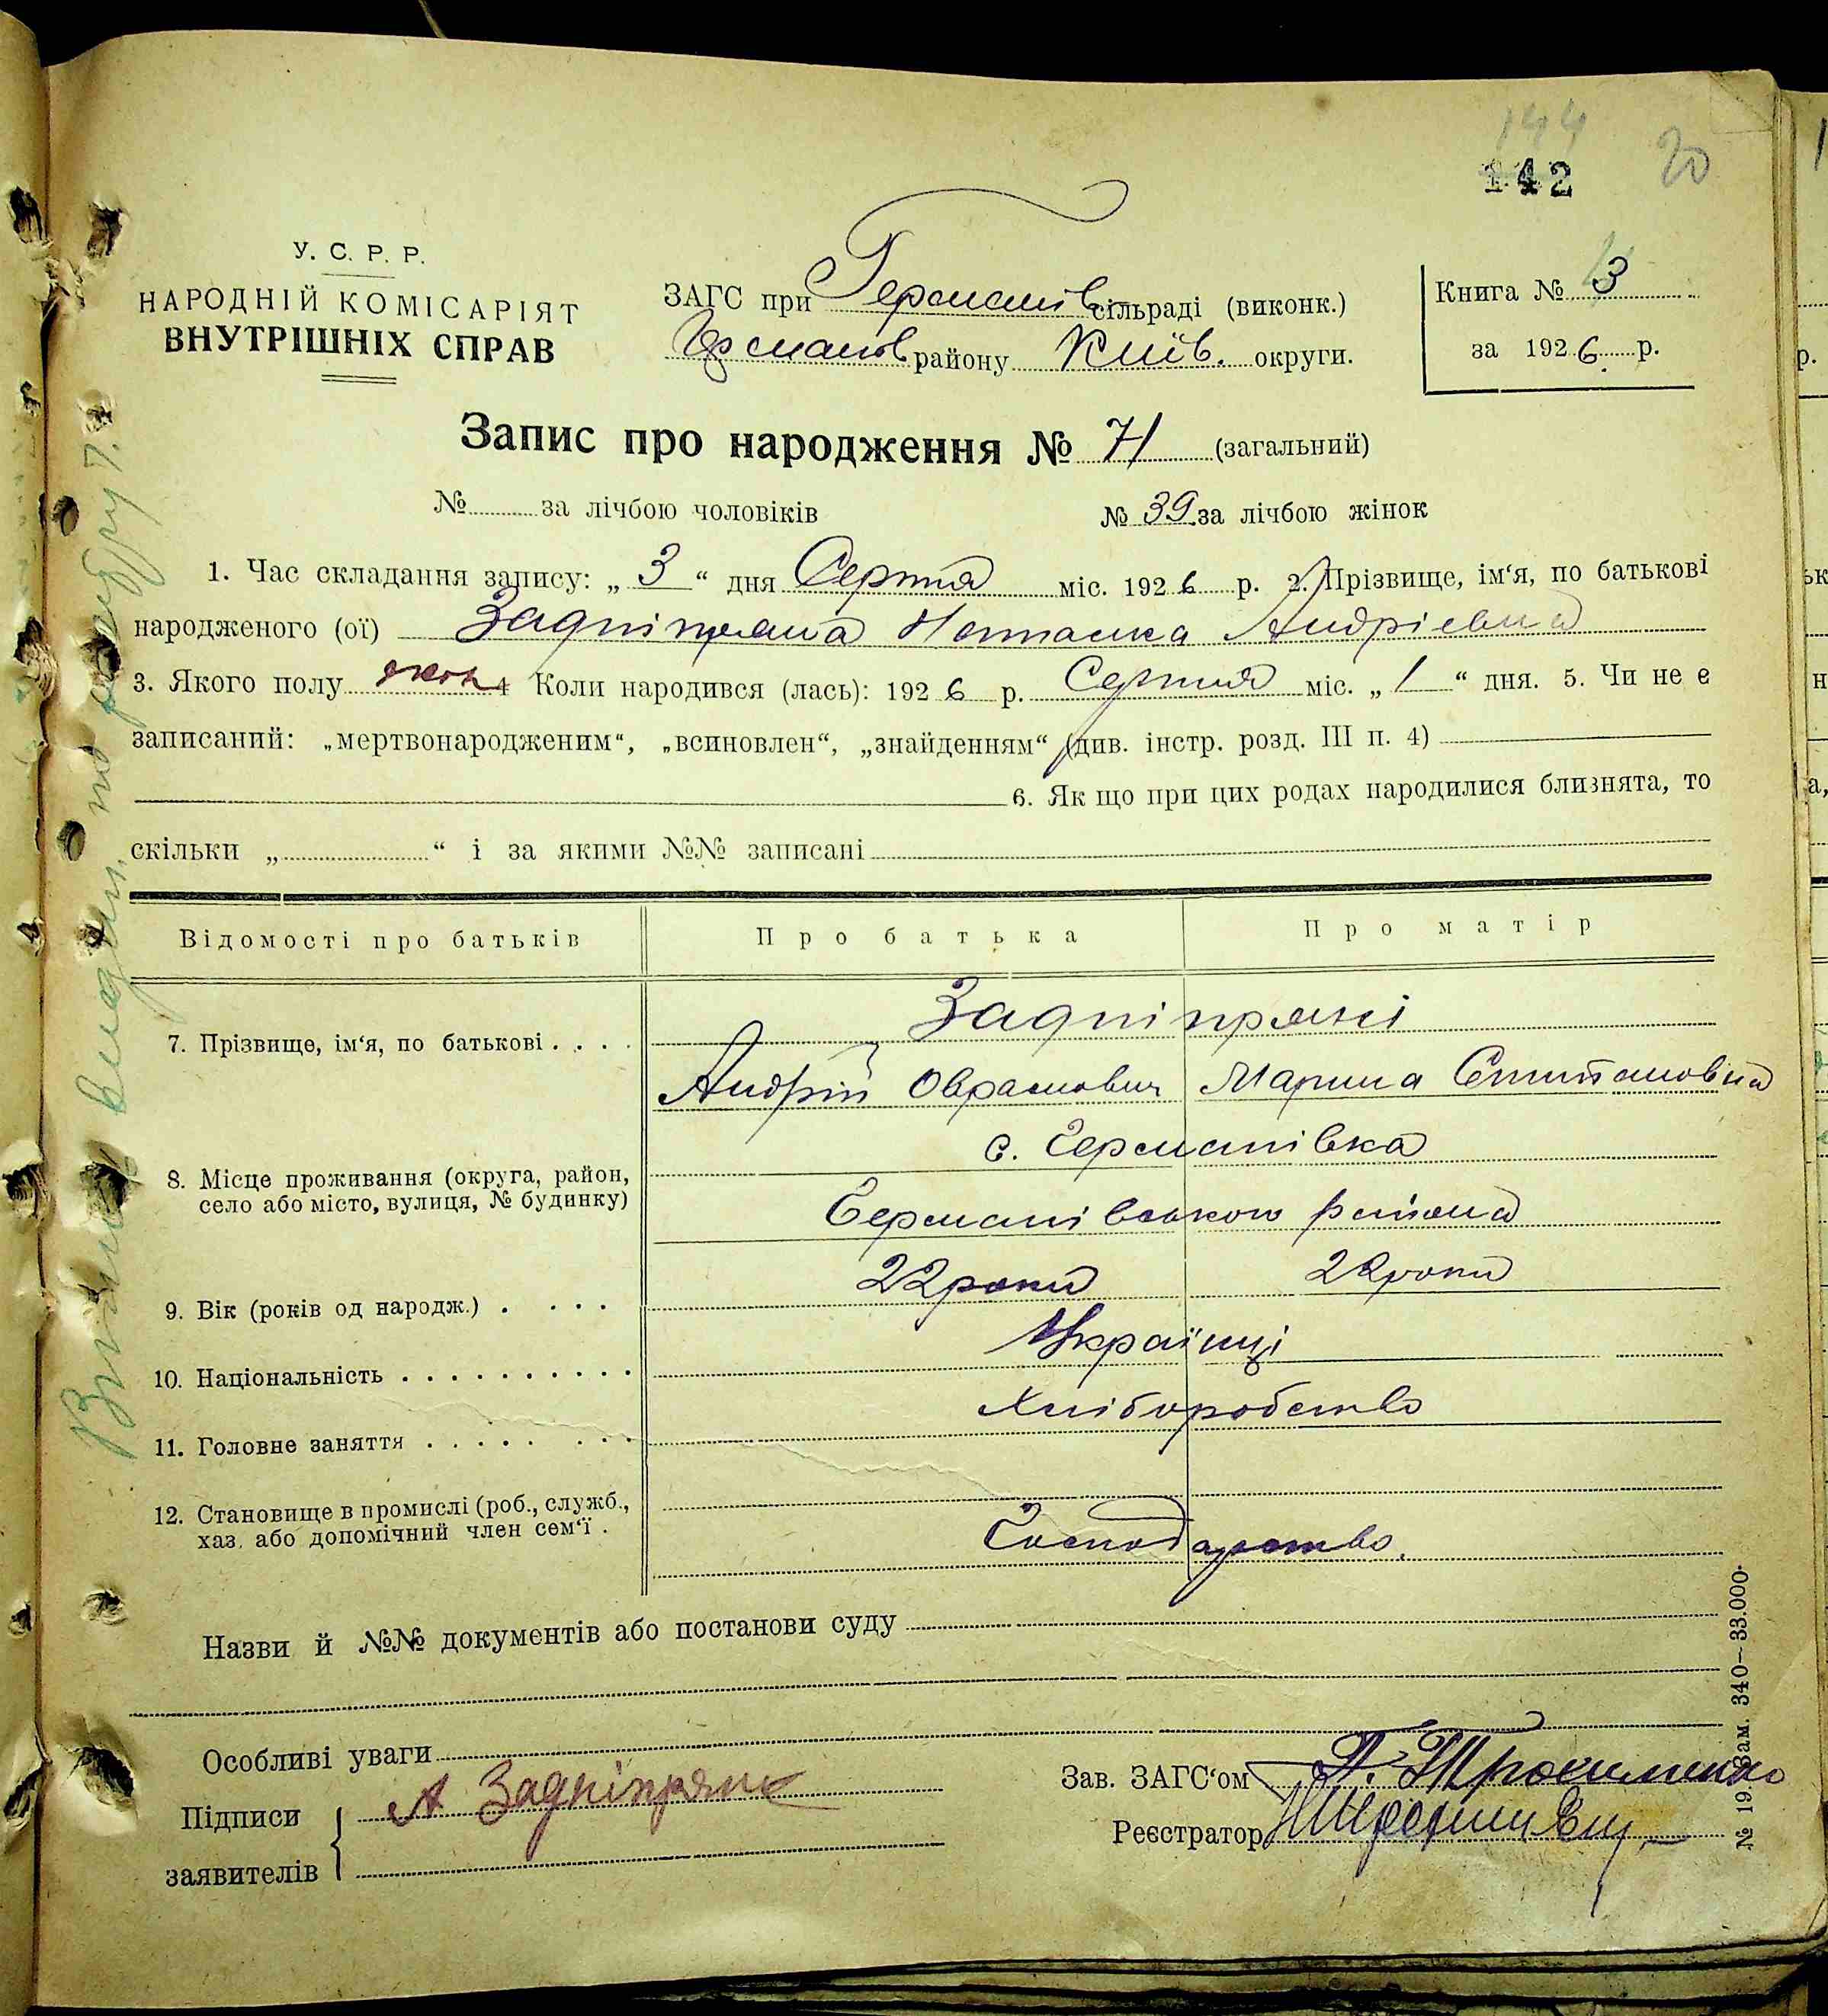 144
142 20
У. С. Р. Р.
НАРОДНІЙ КОМІСАРІЯТ
ВНУТРІШНІХ СПРАВ
ЗАГС при Германів сільраді (виконк.)
Германов району Київ. округи.
Книга № 3
за 1926 р.
Запис про народження № 71 (загальний)
№ за лічбою чоловіків № 39 за лічбою жінок
1. Час складання запису: „ 3 “ дня Серпня міс. 1926 р. 2. Прізвище, ім‘я, по батькові
народженого (ої) Задніпряна Наталка Андріевна
3. Якого полу жон 4 Коли народився (лась): 1926 р. Серпня міс. „ 1 “ дня. 5. Чи не є
записаний: „мертвонародженим“, „всиновлен“, „знайденням“ (див. інстр. розд. III п. 4)
6. Як що при цих родах народилися близнята, то
скільки „ “ і за якими №№ записані
Відомості про батьків Про батька Про матір
7. Прізвище, ім‘я, по батькові . . . .
Задніпряні
Андрій Оврамович Марина
8. Місце проживання (округа, район,
село або місто, вулиця, № будинку)
с. Германівка
Германівського района
9. Вік (років од народж.) . . . .
22 роки 22 роки
10. Національність . . . . . . . . . .
Українці
11. Головне заняття . . . . . . . .
Хліборобство
12. Становище в промислі (роб., служб.,
хаз. або допомічний член сем‘ї .
Господарство.
Назви й №№ документів або постанови суду
Особливі уваги
Підписи
заявителів
А Задніпряни
Зав. ЗАГС‘ом
Реєстратор
№ 19 Зам. 340—33.000.